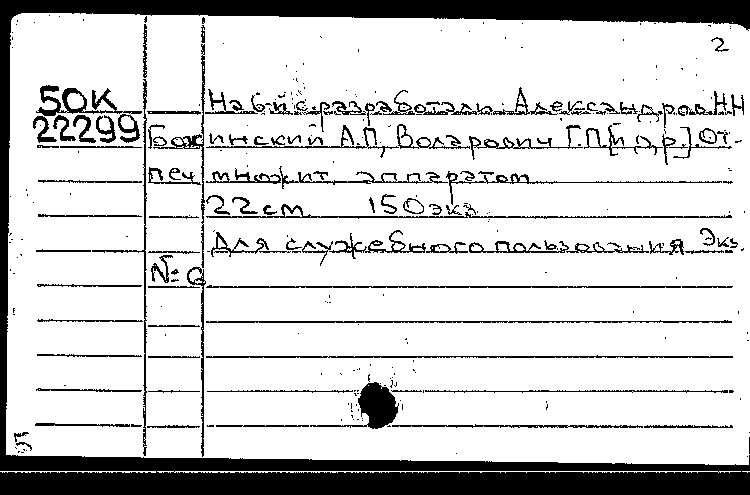 2
50К На 6-й с. разработали: Александров Н.Н
22299 Божинский А.П., Воларович Г.П. [и др.]. От-
печ множит. аппаратом
22 см. 150 экз.
Для служебного пользования Экз.
№ 6
5